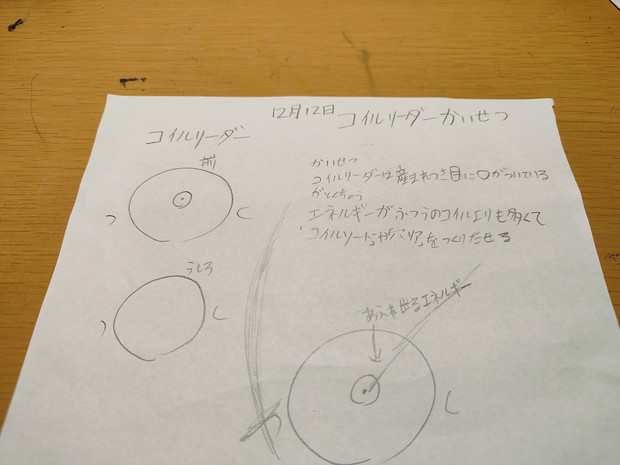 12月12日 コイルリーダーかいせつ
コイルリーダー
前
うしろ
かいせつ
コイルリーダーは産まれつき目に〇がついている
がとくちょう
エネルギーがふつうのコイルよりも多くて
「コイルソード」や「バリア」をつくりだせる
あふれ出るエネルギー